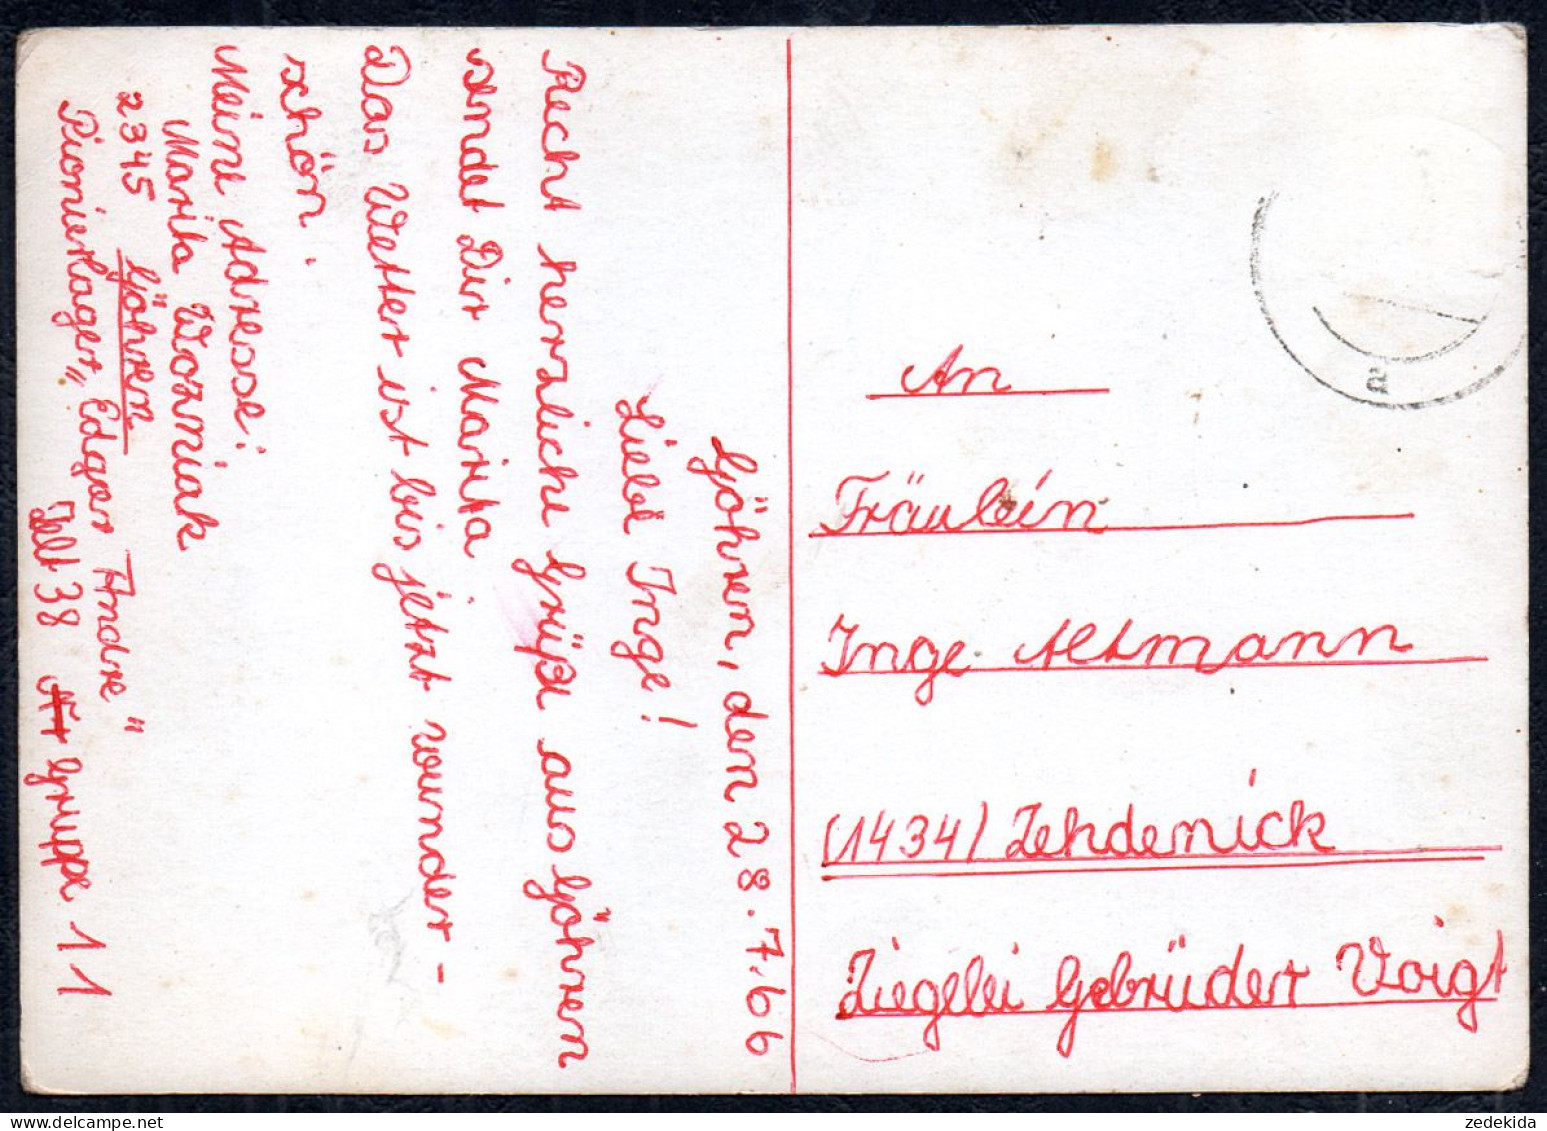 Göhren, den 28.7.66
Liebe Inge!
Recht herzliche Grüße aus Göhren
sendet Dir Marita
Das Wetter ist bis jetzt wunder-
schön.
Meine Adresse:
Marita Wozniak
2345 Göhren
Pionierlager „Edgar Andre"
Zelt 38 Gruppe 11
An
Fräulein
Inge Altmann
(1434) Zehdenick
Ziegelei Gebrüder Voigt
a
zedekida